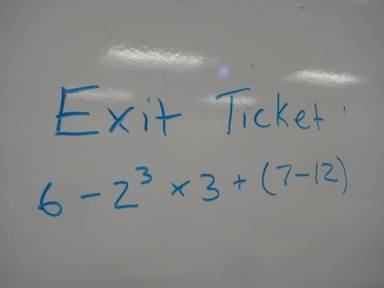 Exit Ticket
6 - 2³ × 3 + (7-12)